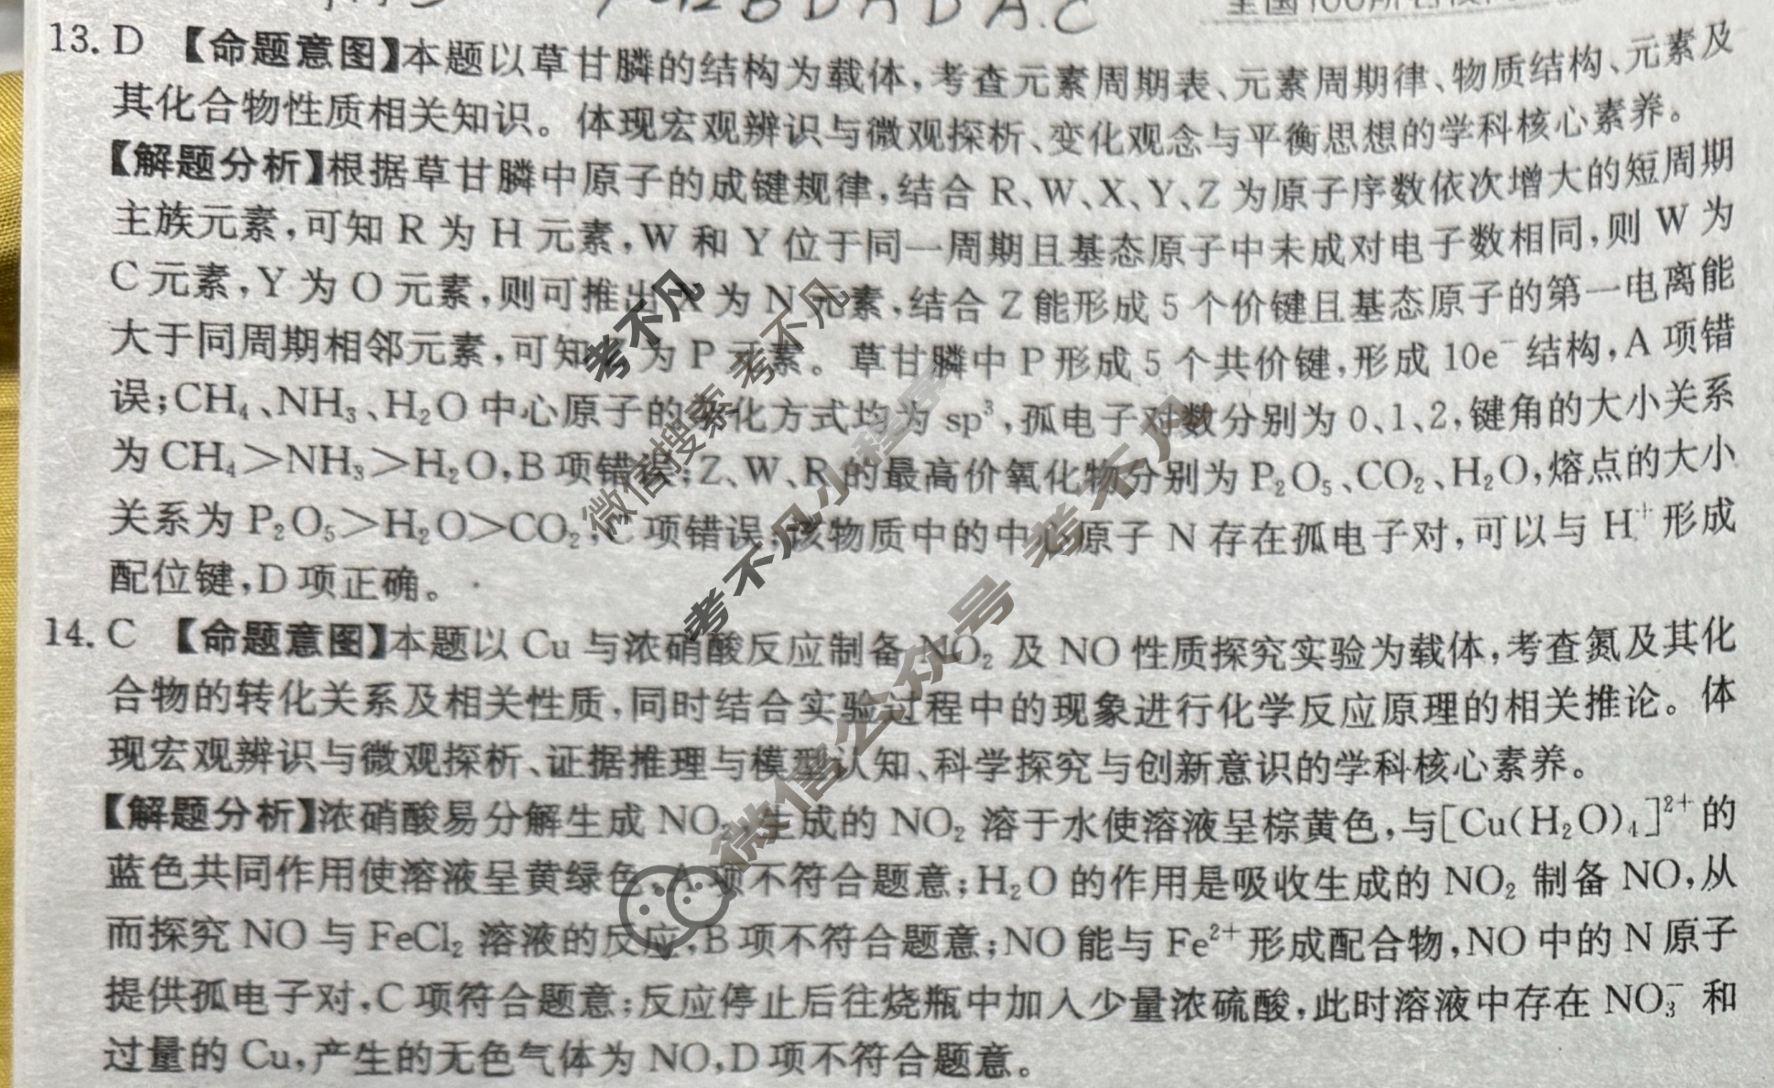 B D A D A.C
13. D 【命题意图】本题以草甘膦的结构为载体,考查元素周期表、元素周期律、物质结构、元素及
其化合物性质相关知识。体现宏观辨识与微观探析、变化观念与平衡思想的学科核心素养。
【解题分析】根据草甘膦中原子的成键规律,结合 R、W、X、Y、Z 为原子序数依次增大的短周期
主族元素,可知 R 为 H 元素,W 和 Y 位于同一周期且基态原子中未成对电子数相同,则 W 为
C 元素,Y 为 O 元素,则可推出 X 为 N 元素,结合 Z 能形成 5 个价键且基态原子的第一电离能
大于同周期相邻元素,可知 Z 为 P 元素。草甘膦中 P 形成 5 个共价键,形成 10e⁻ 结构,A 项错
误;CH₄、NH₃、H₂O 中心原子的杂化方式均为 sp³,孤电子对数分别为 0、1、2,键角的大小关系
为 CH₄>NH₃>H₂O,B 项错误;Z、W、R 的最高价氧化物分别为 P₂O₅、CO₂、H₂O,熔点的大小
关系为 P₂O₅>H₂O>CO₂,C 项错误;该物质中的中心原子 N 存在孤电子对,可以与 H⁺ 形成
配位键,D 项正确。
14. C 【命题意图】本题以 Cu 与浓硝酸反应制备 NO₂ 及 NO 性质探究实验为载体,考查氮及其化
合物的转化关系及相关性质,同时结合实验过程中的现象进行化学反应原理的相关推论。体
现宏观辨识与微观探析、证据推理与模型认知、科学探究与创新意识的学科核心素养。
【解题分析】浓硝酸易分解生成 NO₂,生成的 NO₂ 溶于水使溶液呈棕黄色,与[Cu(H₂O)₄]²⁺的
蓝色共同作用使溶液呈黄绿色,A 项不符合题意;H₂O 的作用是吸收生成的 NO₂ 制备 NO,从
而探究 NO 与 FeCl₂ 溶液的反应,B 项不符合题意;NO 能与 Fe²⁺ 形成配合物,NO 中的 N 原子
提供孤电子对,C 项符合题意;反应停止后往烧瓶中加入少量浓硫酸,此时溶液中存在 NO₃⁻ 和
过量的 Cu,产生的无色气体为 NO,D 项不符合题意。
考不凡
微信搜索 考不凡
考不凡小程序
微信公众号 考不凡